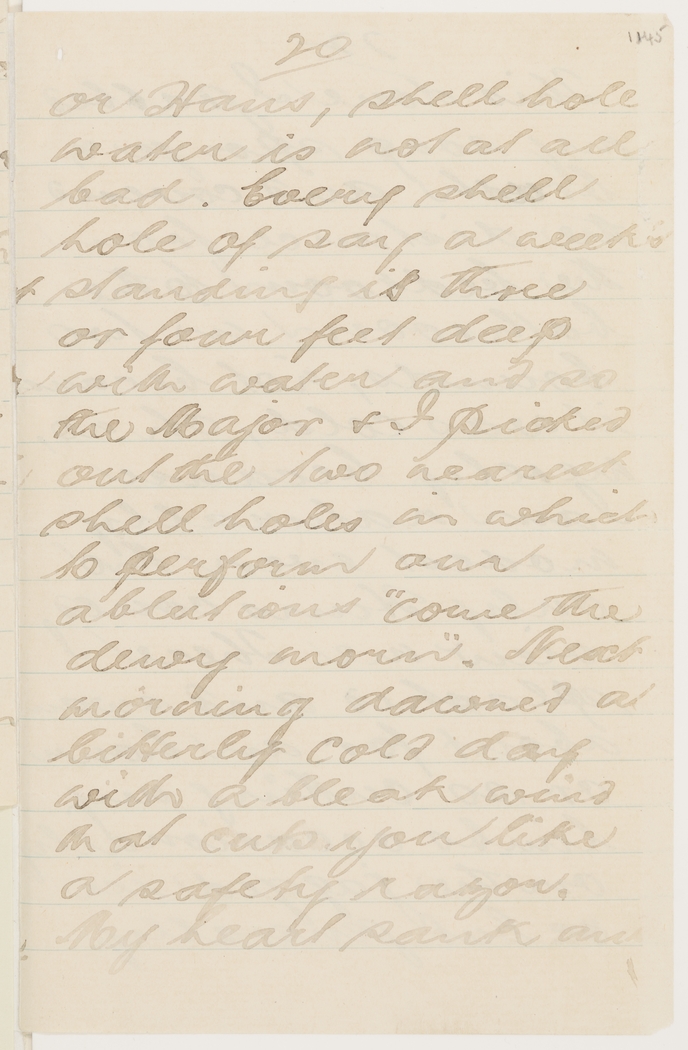 20
1145
or Hans, shell hole
water is not at all
bad. Every shell
hole of say a week's
standing is three
or four feet deep
with water and so
the Major & I picked
out the two nearest
shell holes in which
to perform our
ablutions "come the
dewy morn". Next
morning dawned a
bitterly cold day
with a bleak wind
that cuts you like
a safety razor.
My heart sank